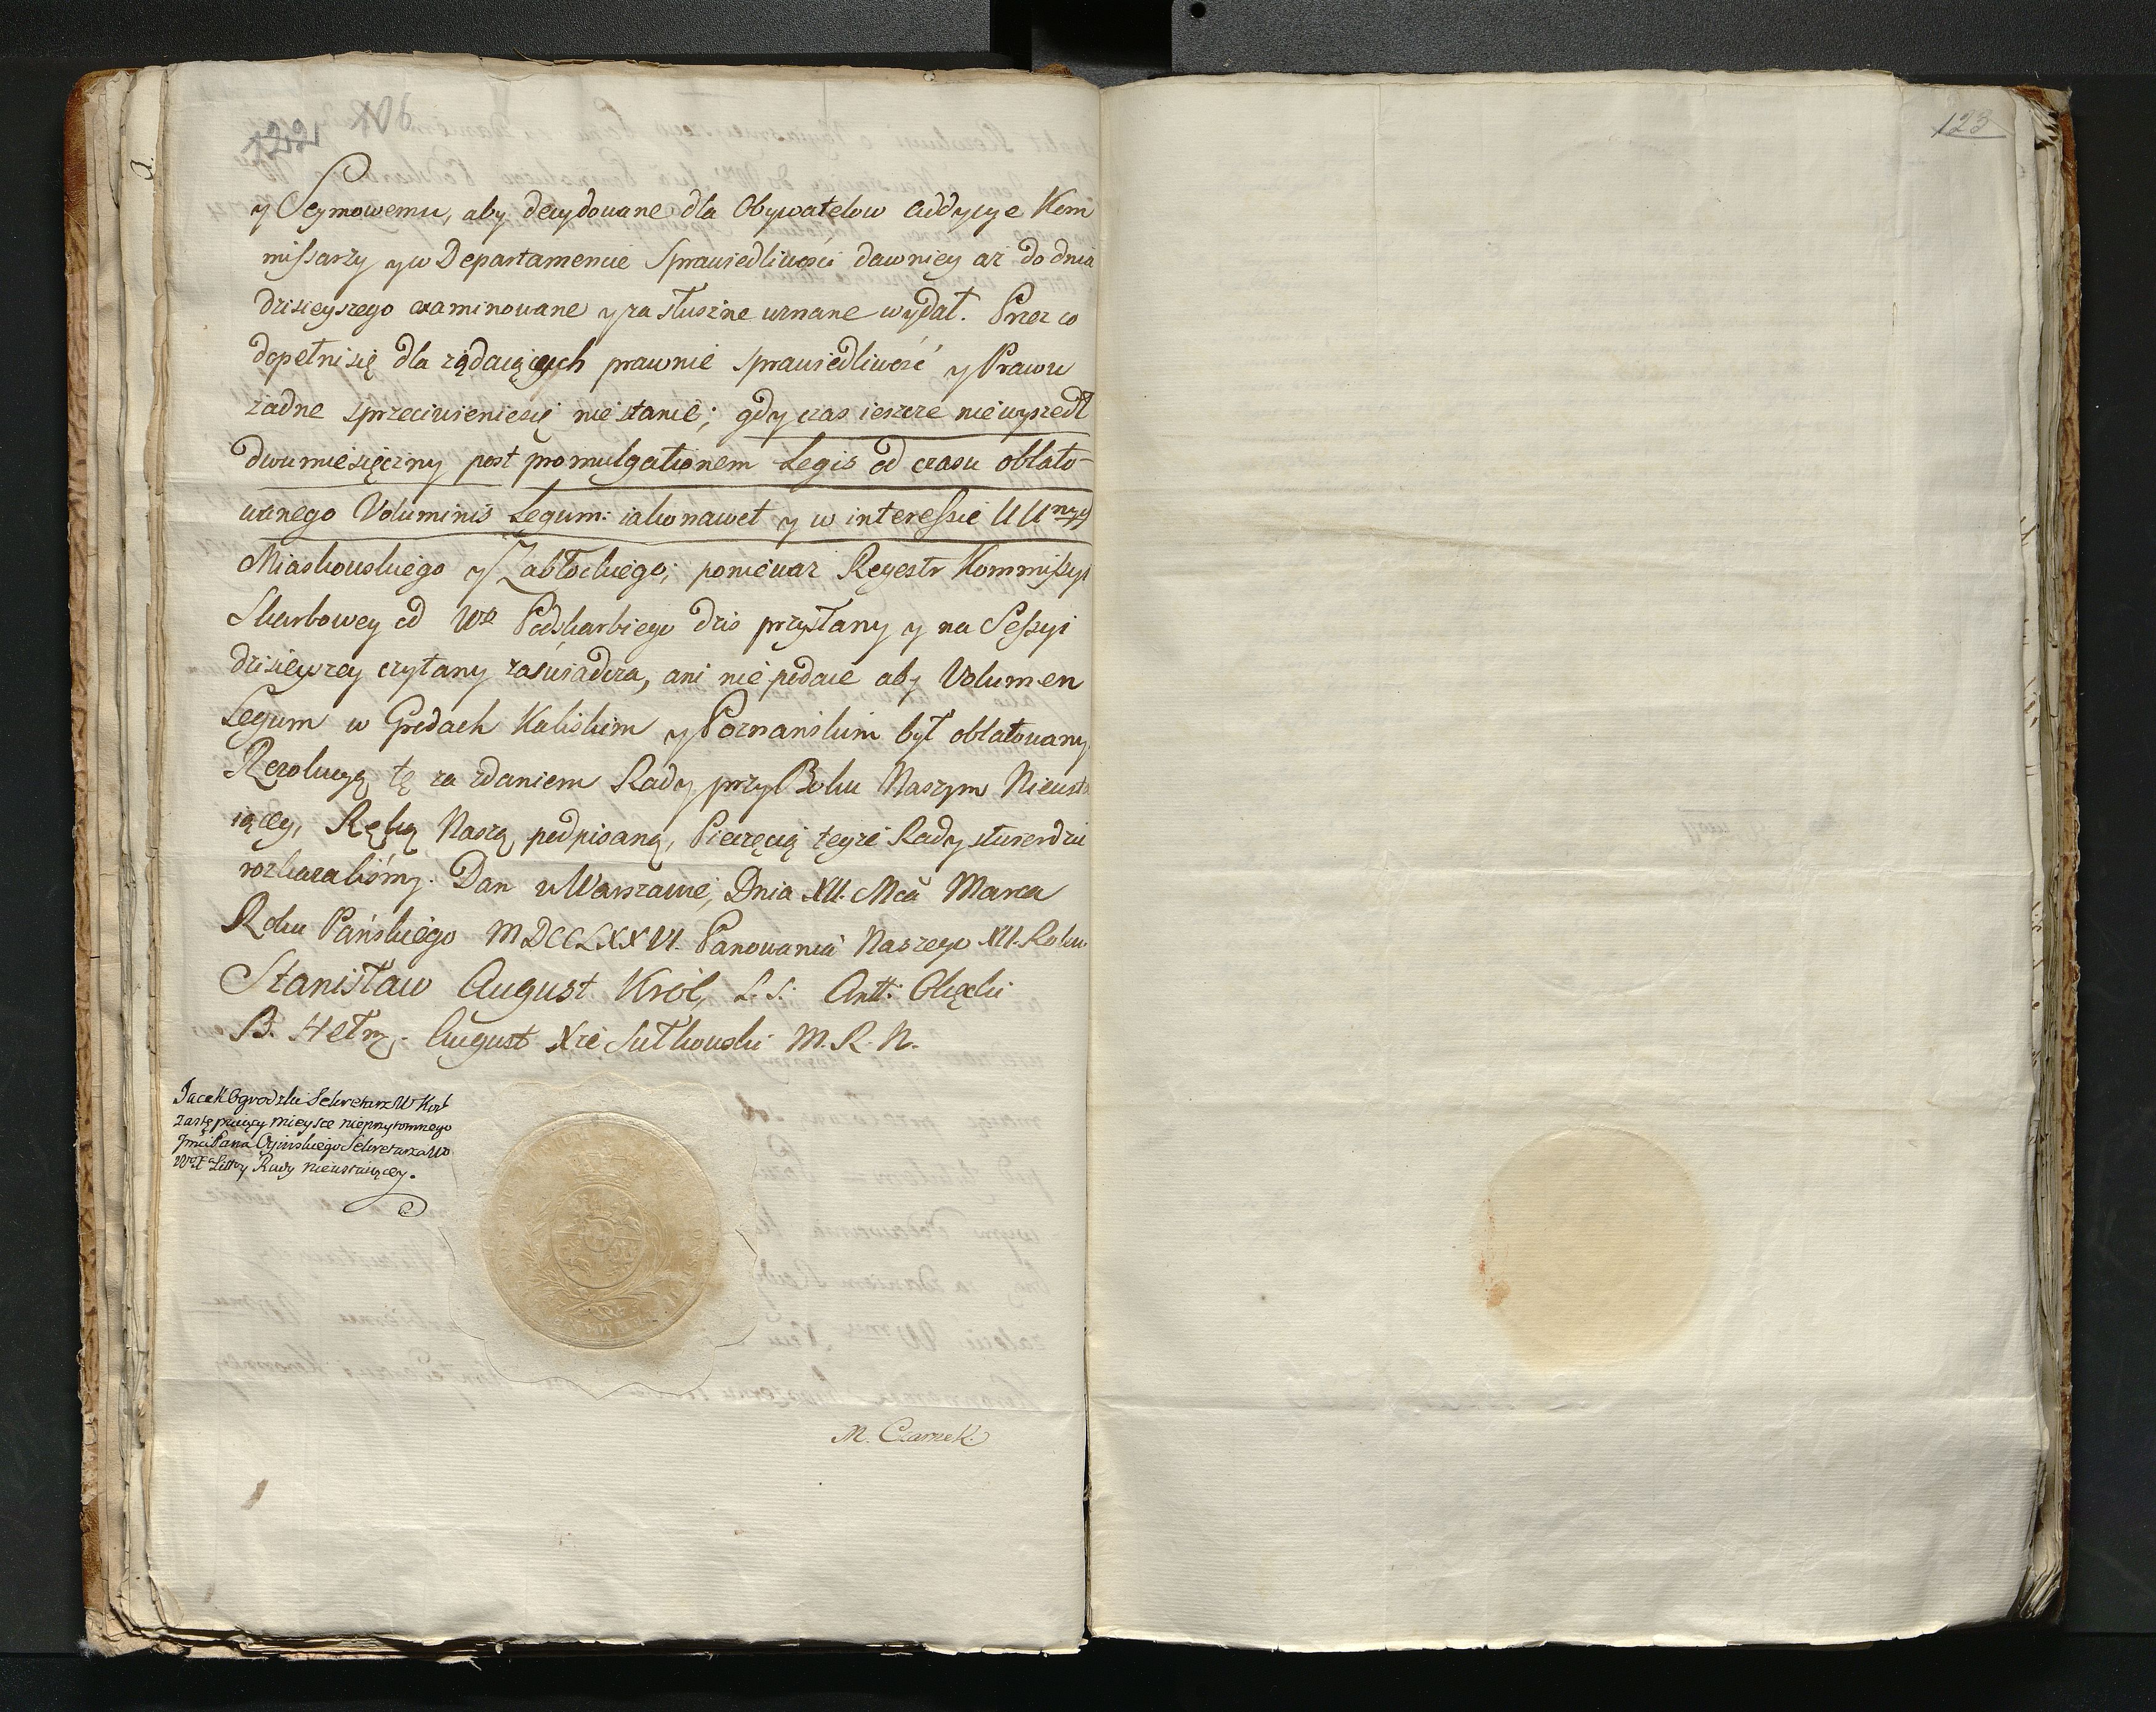 122 106
y Seymowemu, aby decydowane dla Obywatelow Addycye Kom
missarzy y w Departamencie Sprawiedliwości dawniey aż do dnia
dzisieyszego examinowane y za słuszne uznane wydał. Przez co
dopełni się dla żądaiących prawnie sprawiedliwość y Prawu
żadne sprzeciwienie się nie stanie; gdy czas ieszcze nie wyszedł
dwumiesięczny post promulgationem Legis od czasu oblato-
wanego Voluminis Legum: iako nawet y w interessie UUnych
Miaskowskiego y Zabłockiego; ponieważ Regestr Kommissyi
Skarbowey od Wo Podskarbiego dziś przysłany y na Sessyi
dzisieyszey czytany zaświadcza, ani nie podaie aby Volumen
Legum w Grodach Kaliskim y Poznańskim był oblatowany.
Rezolucyą tę za zdaniem Rady przy Boku Naszym Nieusta
iącey, Ręką Naszą podpisaną, Pieczęcią teyże Rady stwierdzić
rozkazaliśmy. Dan w Warszawie, Dnia XII. Mca Marca
Roku Pańskiego MDCCLXXVI. Panowania Naszego XII. Roku.
Stanisław August Król, L. S. Antt:
B. Hetm. August Xże Sułkowski M. R. N.
Jacek Ogrodzki Sekretarz W Kor
zastępuiący mieysce nieprzytomnego
Jmci Pana Ogińskiego Sekretarza Wo
Wo Xa Litto Rady nieustaiącey.
M. Czarnek.
123